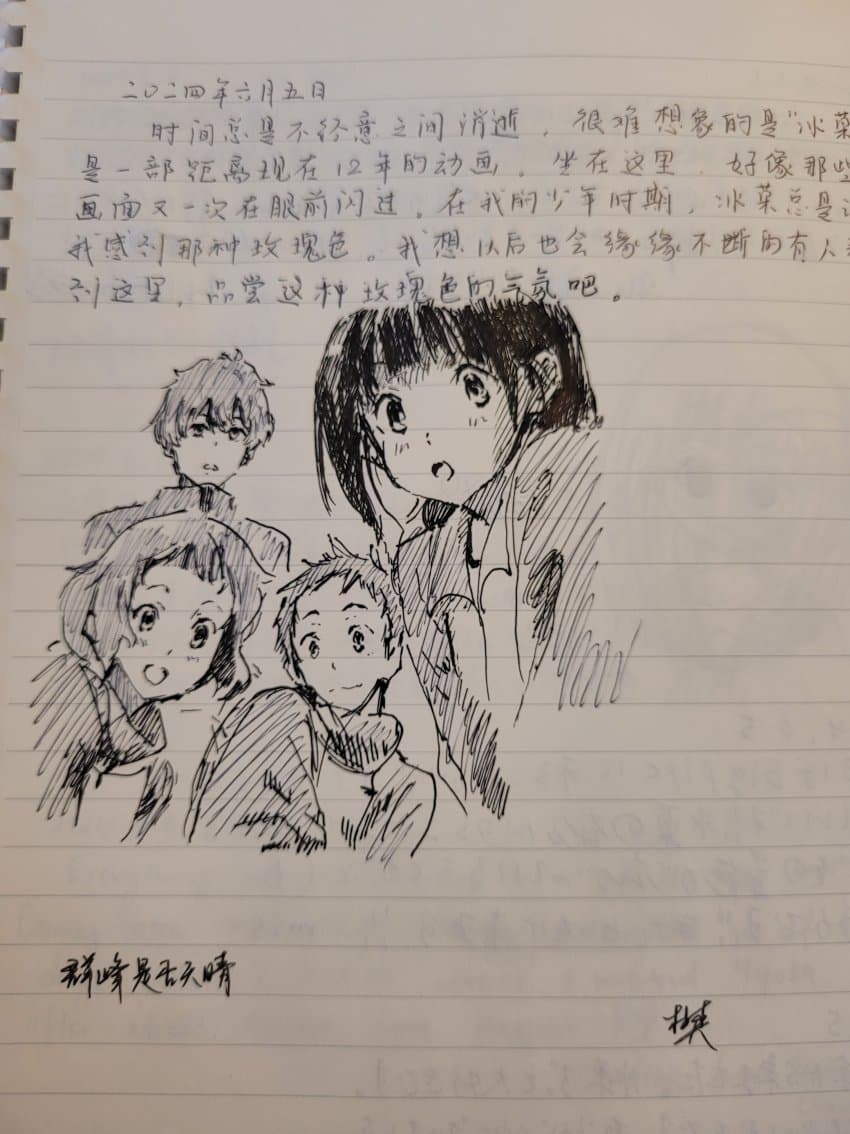 二〇二四年六月五日
时间总是不经意之间消逝，很难想象的是“冰菓
是一部距离现在12年的动画。坐在这里，好像那些
画面又一次在眼前闪过。在我的少年时期，冰菓总是让
我感到那种玫瑰色。我想以后也会缘缘不断的有人
到这里，品尝这种玫瑰色的气氛吧。
群峰是否天晴
樊